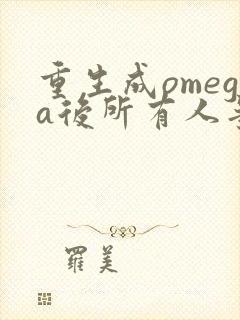 重生成omeg
a後所有人
羅美